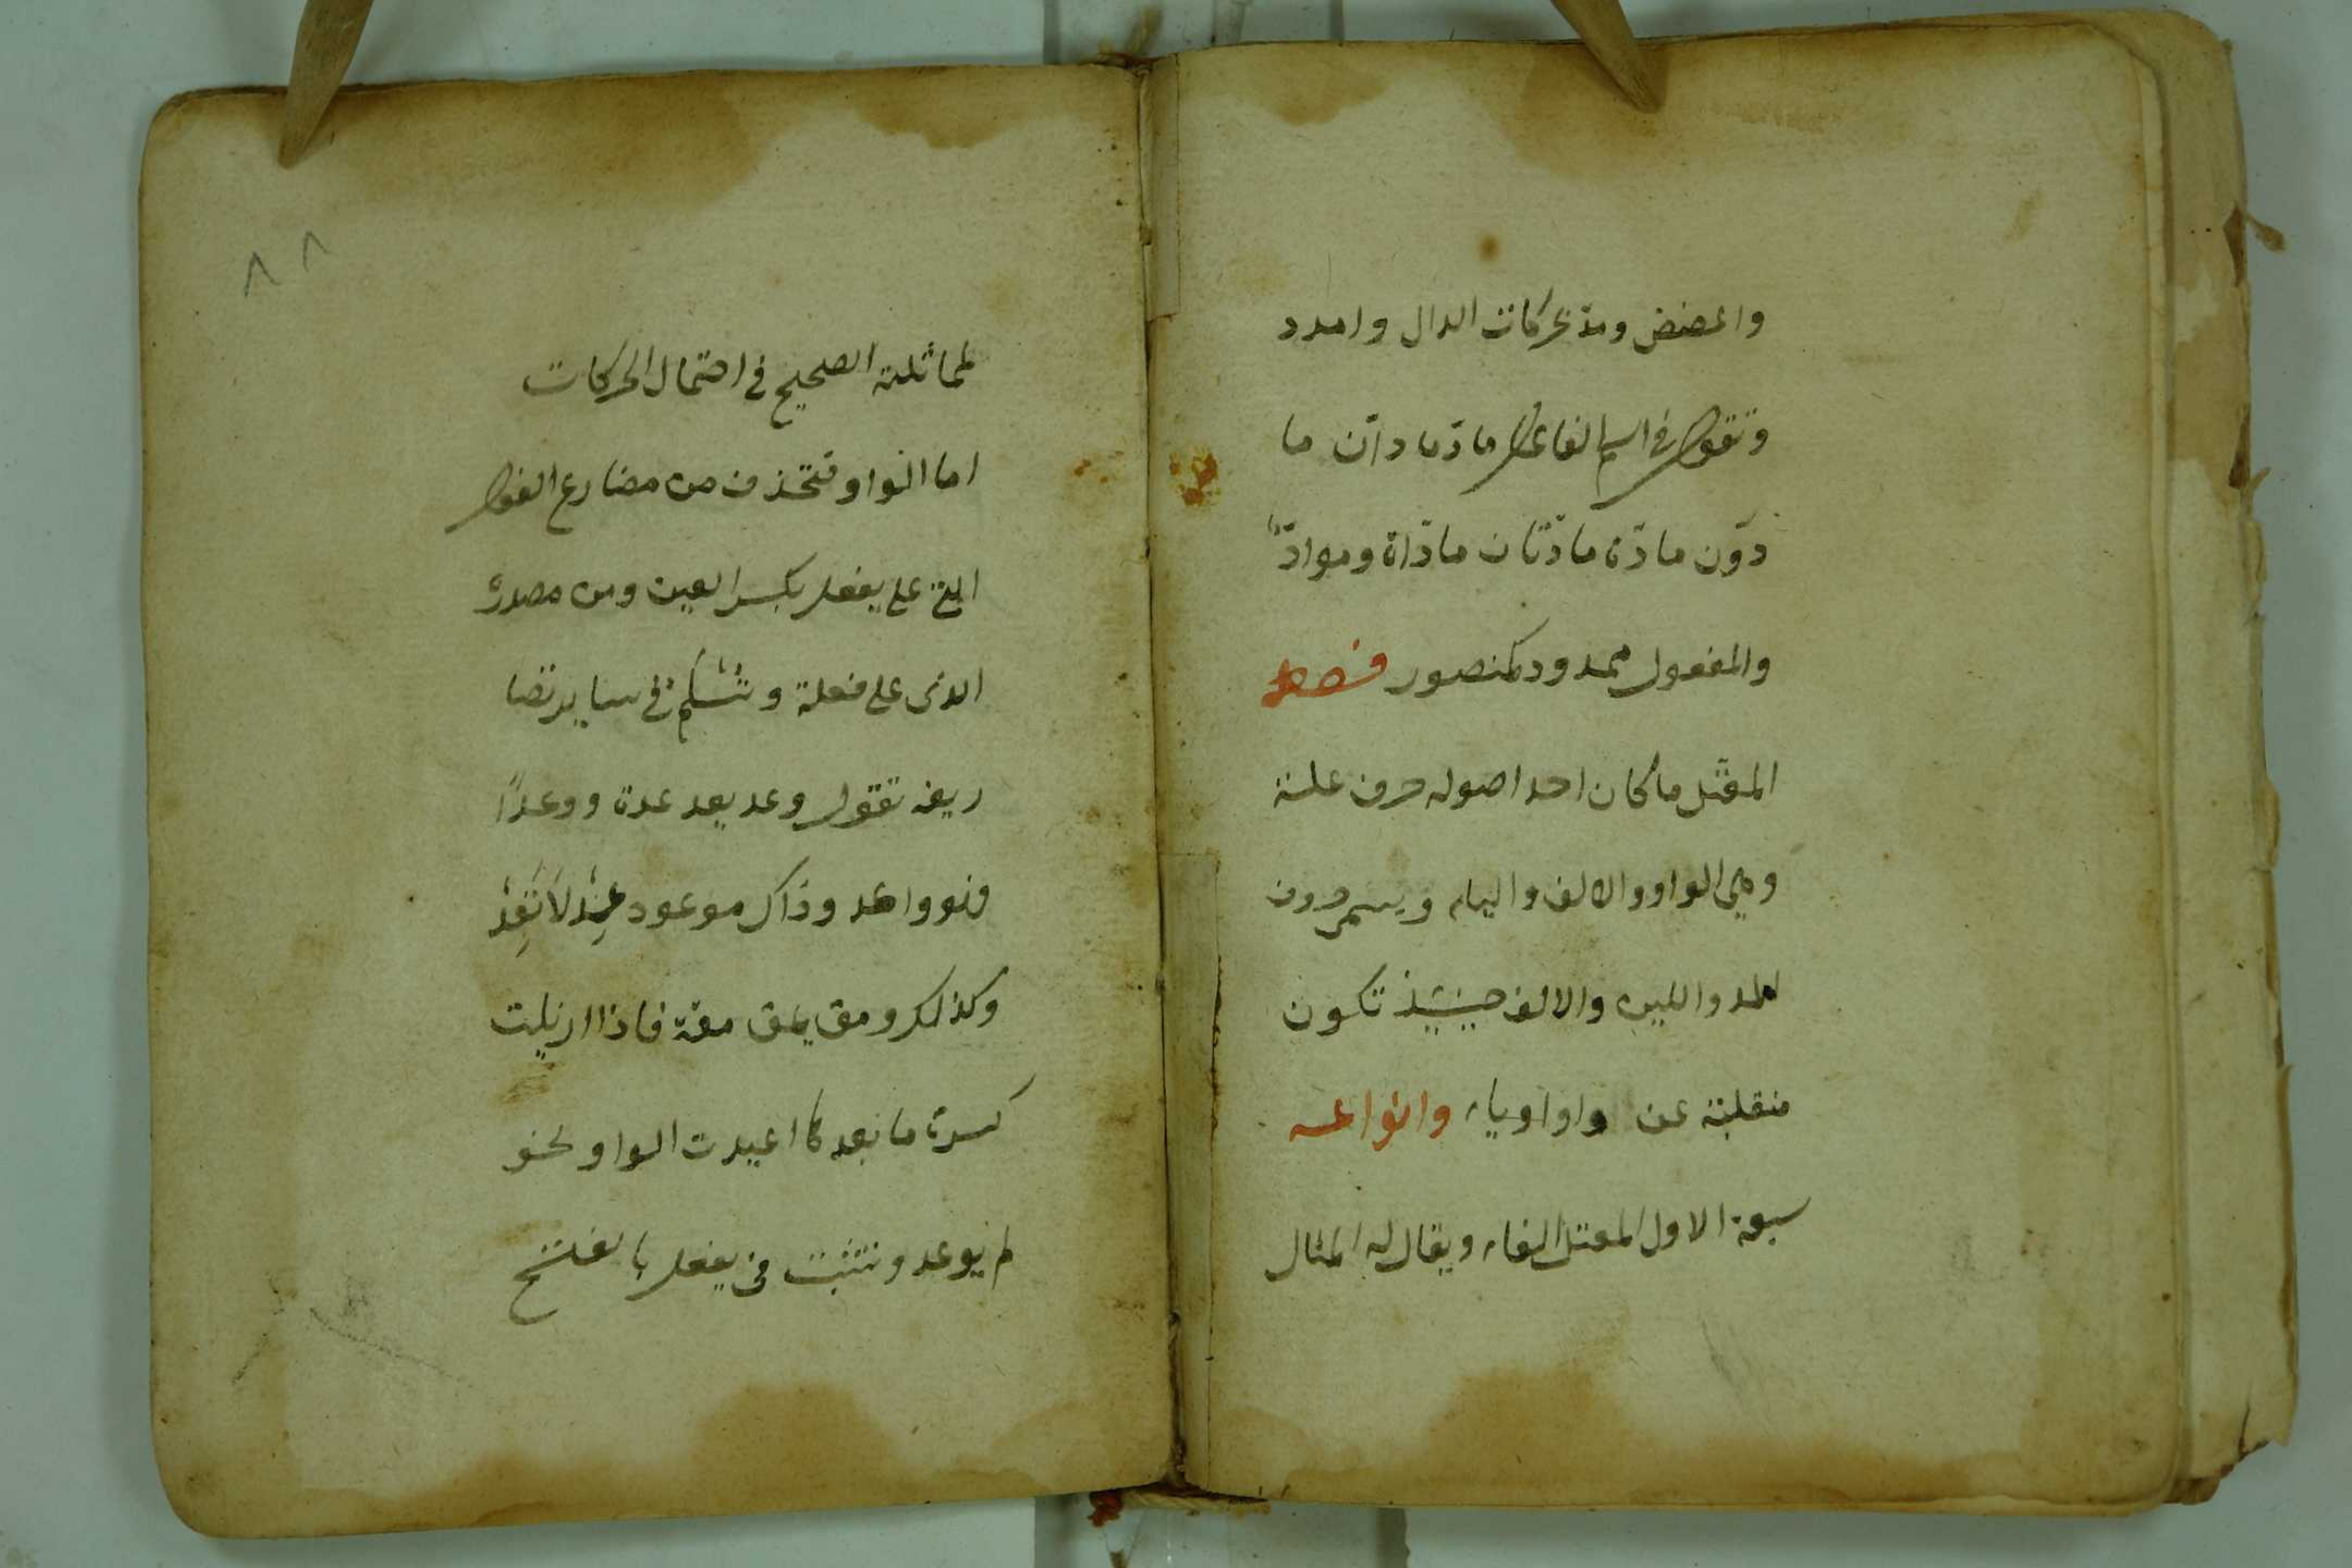 واعضض ومد بحركات الدال وامدد
وتقول في اسم الفاعل مادّ مادّان ما
دّون مادّة مادّتان مادّاة وموادّ
والمفعول ممدود كمنصور فصل
المعتل ما كان احد اصوله حرف علة
وهي الواو والالف والياء ويسمى حروف
المد واللين والالف حينئذ تكون
منقلبة عن واو او ياء وانواعه
سبعة الاول المعتل الفاء ويقال له المثال
٨٨
لمماثلته الصحيح في احتمال الحركات
اما الواو فتحذف من مضارع الفعل
الذي على يفعل بكسر العين ومن مصدره
الذي على فعلة وتَسْلَمُ في ساير تصا
ريفه تقول وعد يعد عدة ووعدًا
فهو واعد وذاك موعود عِدْ لَا تَعِدْ
وكذلك ومق يمق مقة فاذا ازيلت
كسرة ما بعدها اعيدت الواو نحو
لم يوعد وتثبت في يفعل بالفتح